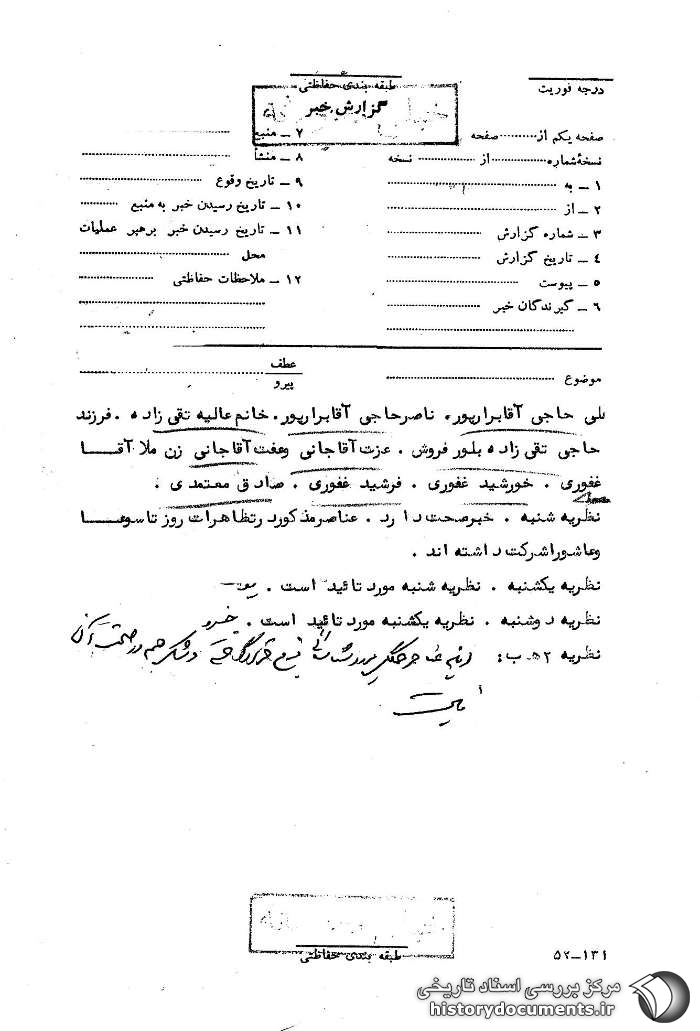 درجه فوریت
طبقه بندی حفاظتی
گزارش خبر
صفحه یکم از ............ صفحه
نسخه شماره ............ از ............ نسخه
۱ ـ به
۲ ـ از
۳ ـ شماره گزارش
۴ ـ تاریخ گزارش
۵ ـ پیوست
۶ ـ گیرندگان خبر
۷ ـ منبع
۸ ـ منشأ
۹ ـ تاریخ وقوع
۱۰ ـ تاریخ رسیدن خبر به منبع
۱۱ ـ تاریخ رسیدن خبر برهبر عملیات
محل
۱۲ ـ ملاحظات حفاظتی
موضوع
عطف
پیرو
علی حاجی آقابرارپور، ناصرحاجی آقابرارپور. خانم عالیه تقی زاده .فرزند
حاجی تقی زاده بلور فروش . عزت آقاجانی وعفت آقاجانی زن ملا آقا
غفوری . خورشید غفوری . فرشید غفوری . صادق معتمدی .
نظریه شنبه . خبرصحت دارد . عناصرمذکوردرتظاهرات روز تاسوعا
وعاشوراشرکت داشته اند .
نظریه یکشنبه . نظریه شنبه مورد تائید است .
نظریه دوشنبه . نظریه یکشنبه مورد تائید است . خسرو
نظریه ۲ ه‍ ب :
طبقه بندی حفاظتی
۵۲-۱۳۱
مرکز بررسی اسناد تاریخی
historydocuments.ir